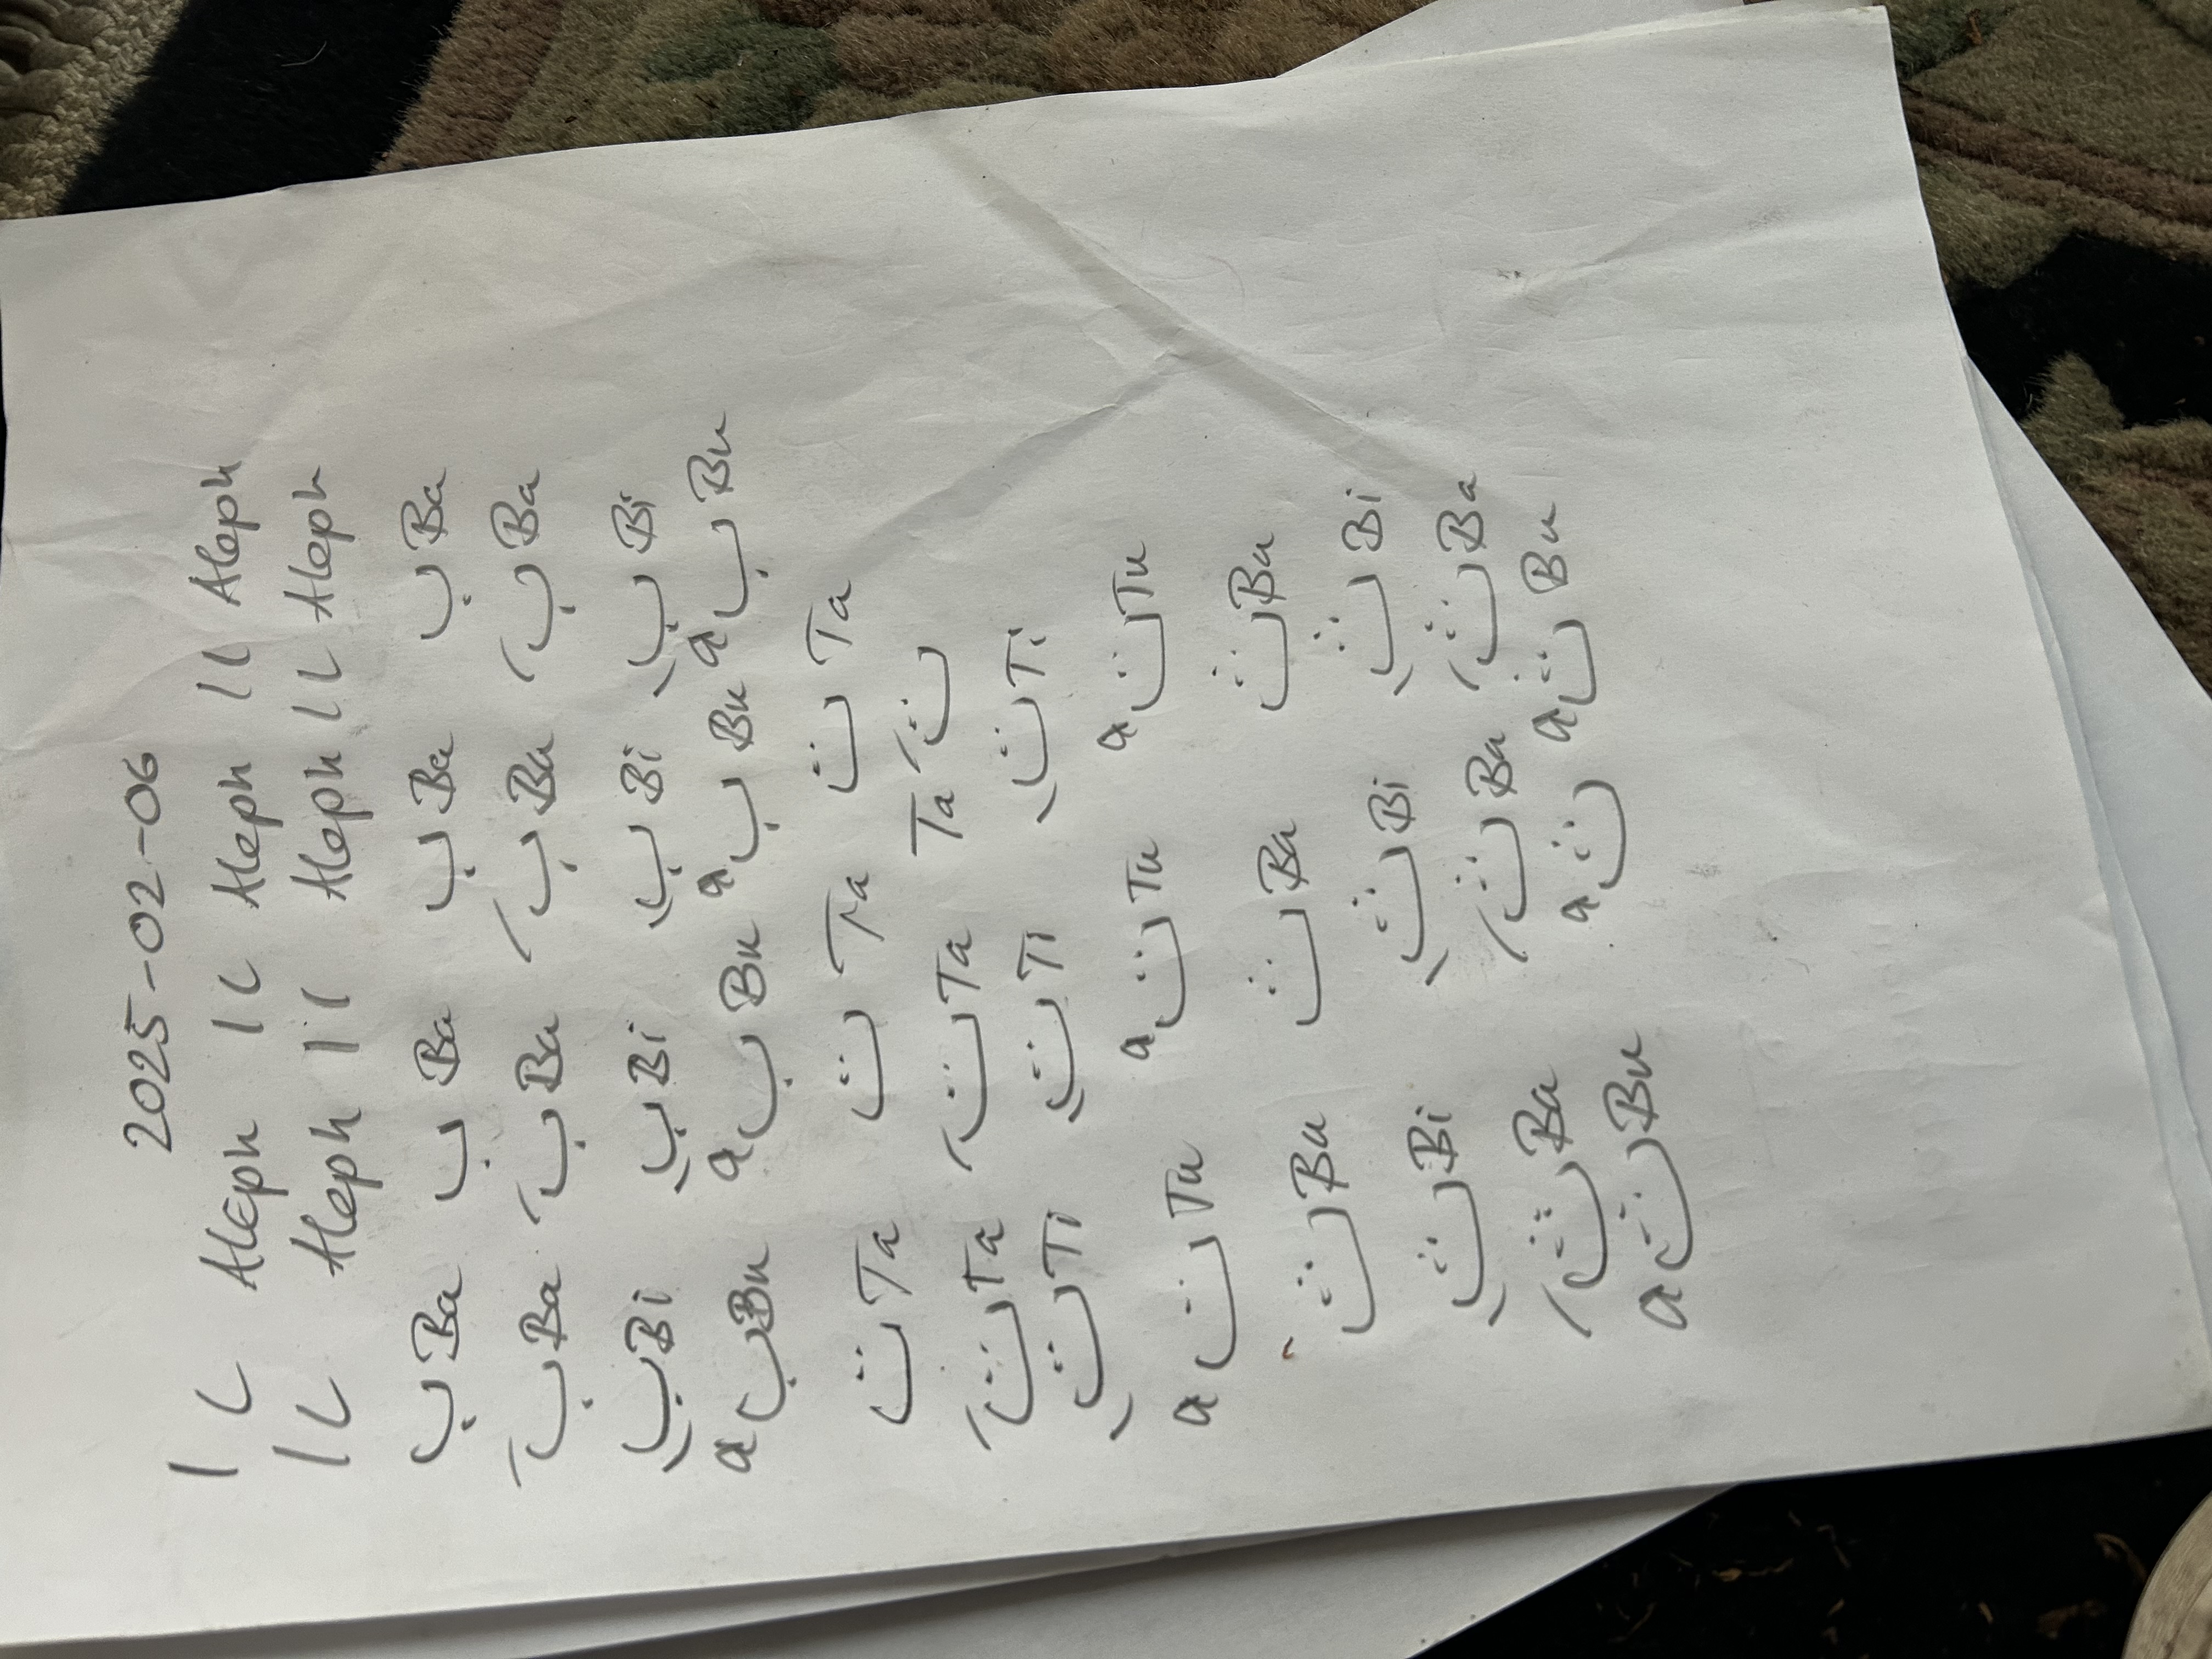 2025-02-06
ا ل Aleph ا ل Aleph ا ل Aleph
ا ل Aleph ا ل Aleph ا ل Aleph
ب Ba ب Ba ب Ba ب Ba
بَ Ba بَ Ba بَ Ba بَ Ba
بِ Bi بِ Bi بِ Bi بِ Bi
بُ Bu بُ Bu بُ Bu بُ Bu
ت Ta ت Ta ت Ta
تَ Ta تَ Ta Ta تَ
تِ Ti تِ Ti تِ Ti
تُ Tu تُ Tu تُ Tu
ث Ba ث Ba ث Ba
ثِ Bi ثِ Bi ثِ Bi
ثَ Ba ثَ Ba ثَ Ba
ثُ Bu ثُ ثُ Bu